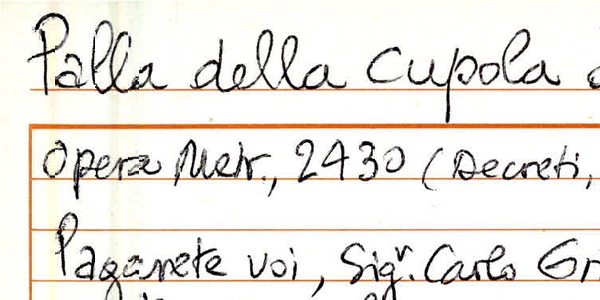 Palla della Cupola
Opera Metr., 2430 (Decreti,
Pagarete voi, Sigr. Carlo